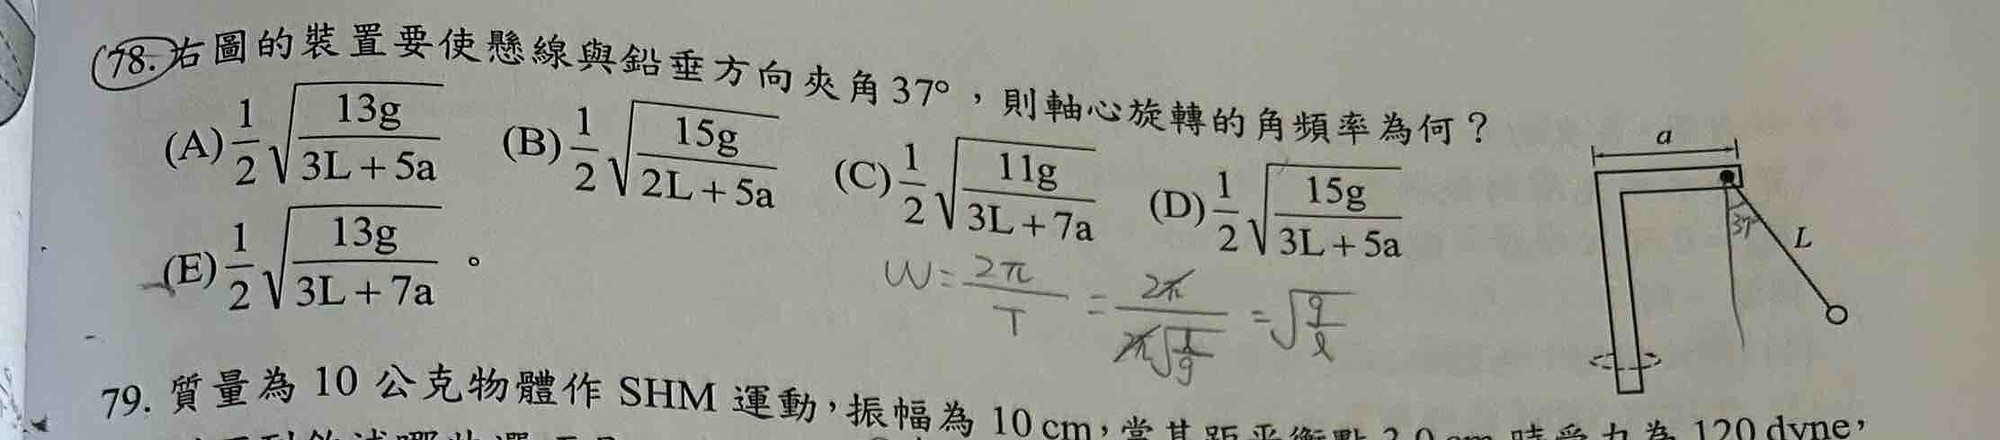 78. 右圖的裝置要使懸線與鉛垂方向夾角37°，則軸心旋轉的角頻率為何？
(A) 1/2 √(13g/(3L+5a)) (B) 1/2 √(15g/(2L+5a)) (C) 1/2 √(11g/(3L+7a)) (D) 1/2 √(15g/(3L+5a))
(E) 1/2 √(13g/(3L+7a)) 。
a
37
L
W = 2π/T = 2π/(2π√(l/g)) = √(g/l)
79. 質量為 10 公克物體作 SHM 運動，振幅為 10 cm，當其距平衡點 2.0 cm 時受力為 120 dyne，